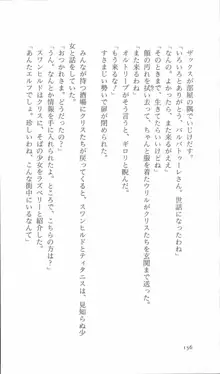 ザックスが部屋の隅でいじけだす。
「いろいろとありがとう、バルバトゥーレさん、世話になったわね」
「なんの。また来るがええ」
「そのときまで、生きていたらいいけどね」
顔の汚れを拭い去って、ちゃんと服を着たウリルがクリスたちを玄関まで送った。
「また来るね」
「もう来るな！」
オルトロープがそう言うと、ギロリと睨んだ。
すさまじい勢いで扉が閉められた。
みんなが待つ酒場にクリスたちが戻ってくると、スワンヒルドとティタニスは、見知らぬ少
女と話をしていた。
「おつかれさま。どうだった？」
「う〜ん、なんとか情報は手に入ったけど。ところで、こちらの方は？」
スワンヒルドはクリスに、そばの少女をラズベリーと紹介した。
「あんたエルフでしょ。珍しいわね、こんな街中にいるなんて」
156